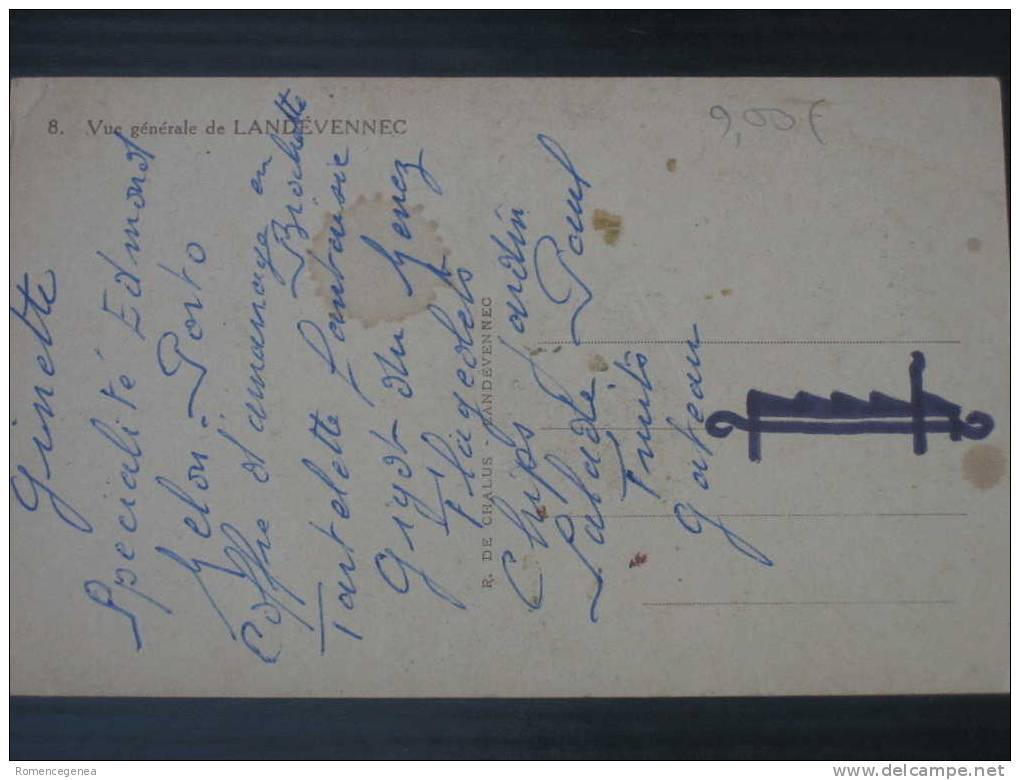 8. Vue générale de LANDÉVENNEC
9,00 €
Ginette
Spécialité Edmond
Melon - Porto
Coffre d'ammanage en Briochette
Tartelette Fantaisie
Gigot du Menez
Flageolets
R. DE CHALUS - LANDEVENNEC
Chips Jardin
Salade Paul
Fruits
Gateau
Romencegenea
www.delcampe.net